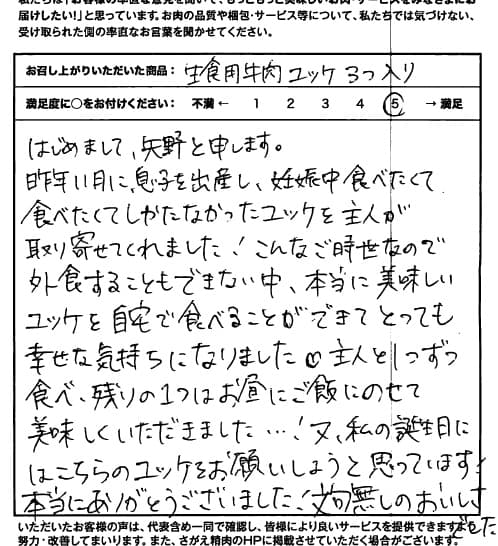 届けしたい!」と思っています。お肉の品質や梱包・サービス等について、私たちでは気づけない、
受け取られた側の率直なお言葉を聞かせてください。
お召し上がりいただいた商品: 生食用牛肉 ユッケ 3つ入り
満足度に○をお付けください: 不満 ← 1 2 3 4 5 → 満足
はじめまして、矢野と申します。
昨年11月に、息子を出産し、妊娠中食べたくて
食べたくてしかたなかったユッケを主人が
取り寄せてくれました!こんなご時世なので
外食することもできない中、本当に美味しい
ユッケを自宅で食べることができてとっても
幸せな気持ちになりました♡主人と1つずつ
食べ、残りの1つはお昼にご飯にのせて
美味しくいただきました…!又、私の誕生日に
はこちらのユッケをお願いしようと思っています!
本当にありがとうございました!文句無しのおいしさ
でした
いただいたお客様の声は、代表含め一同で確認し、皆様により良いサービスを提供できますよう
努力・改善してまいります。また、さがえ精肉のHPに掲載させていただく場合がございます。